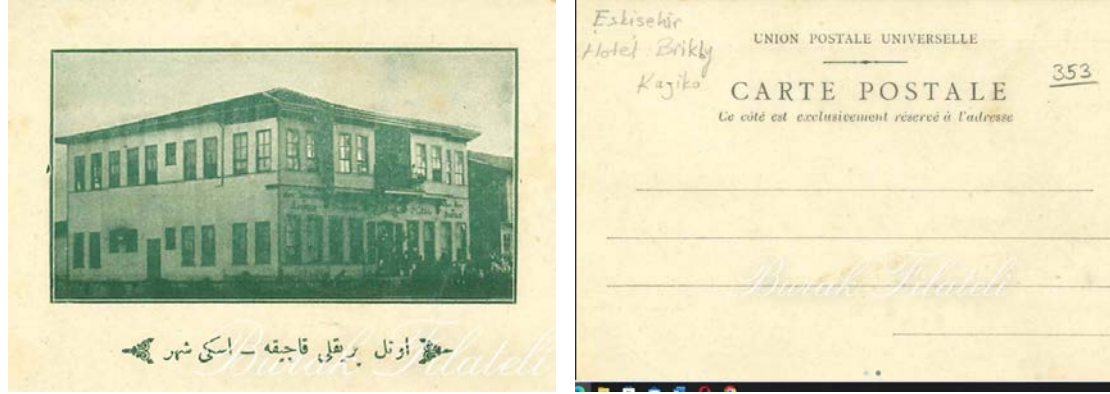 اوتل بریقلی قاچیقه ــ اسکی شهر
Burak Filateli
Eskisehir
Hotel Brikly
Kaziko
UNION POSTALE UNIVERSELLE
353
CARTE POSTALE
Ce côté est exclusivement réservé à l'adresse
Burak Filateli